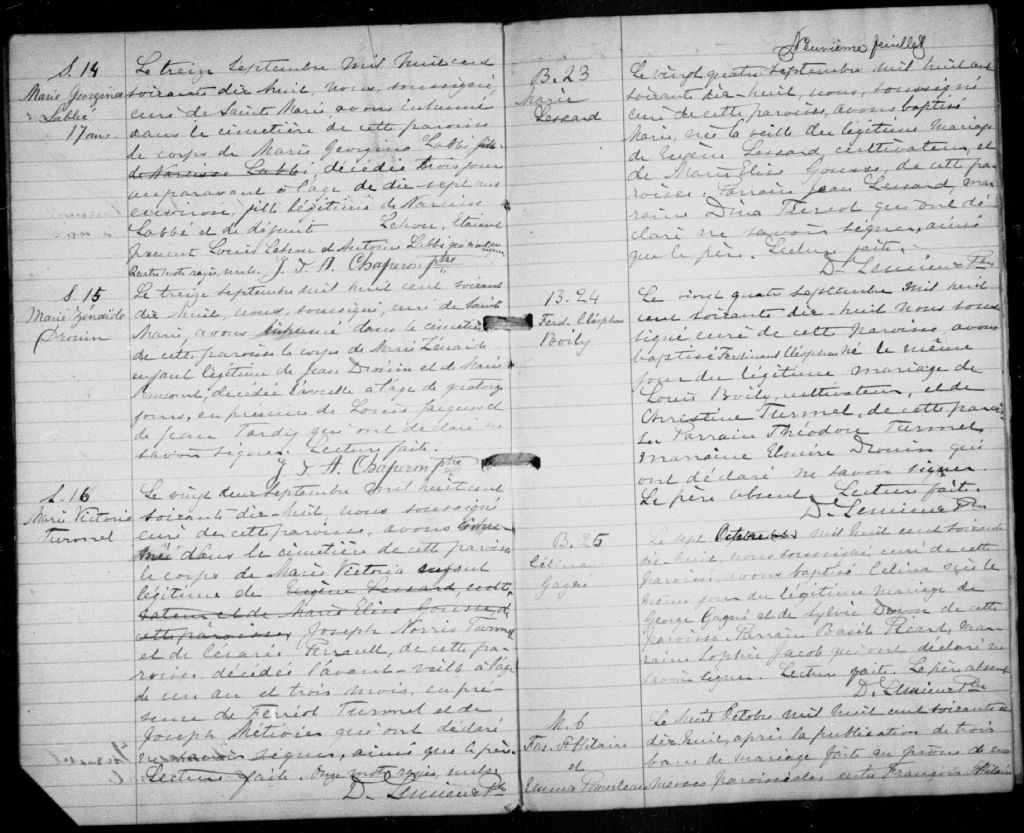 S. 14
Marie Georgina
Labbé
17 ans
Le treize Septembre mil huit cent
soixante dix-huit, nous, soussigné,
curé de Sainte Marie, avons inhumé
dans le cimetière de cette paroisse
le corps de Marie Georgina Labbé fille
de Narcisse Labbé, décédée trois jours
auparavant à l'âge de dix-sept ans
environ, fille légitime de Narcisse
Labbé et de défunte Lehoux. Etaient
présent Louis Lehoux et Antoine Labbé qui n'ont su
signer
Quatre mots rayés nuls. J. & A. Chaperon ptre
S. 15
Marie Zénaïde
Drouin
Le treize septembre mil huit cent soixante
dix huit, nous, soussigné, curé de Sainte
Marie, avons inhumé dans le cimetière
de cette paroisse le corps de Marie Zénaïde
enfant légitime de Jean Drouin et de Marie
Rancourt, décédée la veille à l'âge de quatorze
jours, en présence de Louis Jacques et
de Jean Tardif qui ont déclaré ne
savoir signer. Lecture faite.
J & A. Chaperon ptre
S. 16
Marie Victoria
Turmel
Le vingt deux septembre mil huit cent
soixante dix-huit, nous soussigné
curé de cette paroisse, avons inhu-
mé dans le cimetière de cette paroisse
le corps de Marie Victoria enfant
légitime de Eugène Lessard, culti-
vateur et de Marie Elise Gousse, de
cette paroisse, Joseph Norris Turmel
et de Césarie Perrault, de cette pa-
roisse, décédée l'avant-veille à l'âge
de un an et trois mois, en pré-
sence de Ferréol Turmel et de
Joseph Métivier qui ont déclaré
ne savoir signer, ainsi que le père.
Lecture faite. Onze mots rayés, nuls.
D. Lemieux Ptre
Neuvième feuillet
B. 23
Marie
Lessard
Le vingt quatre septembre mil huit cent
soixante dix-huit, nous, soussigné
curé de cette paroisse, avons baptisé
Marie, née la veille du légitime mariage
de Eugène Lessard, cultivateur, et
de Marie Elise Gousse, de cette pa-
roisse. Parrain Jean Lessard, mar-
raine Dina Turcot qui ont dé-
claré ne savoir signer, ainsi
que le père. Lecture faite.
D. Lemieux Ptre
B. 24
Ferd. Cléophas
Boily
Le vingt quatre septembre mil huit
cent soixante dix-huit nous sous-
signé curé de cette paroisse, avons
baptisé Ferdinant Cléophas né le même
jour du légitime mariage de
Louis Boily, cultivateur, et de
Christine Turmel, de cette parois-
se Parrain Théodore Turmel
marraine Elmire Drouin qui
ont déclaré ne savoir signer.
Le père absent. Lecture faite.
D. Lemieux Ptre
B. 25
Célina
Gagné
Le sept Octobre mil huit cent soixante
dix-huit, nous soussigné curé de cette
paroisse, avons baptisé Célina née le
même jour du légitime mariage de
George Gagné et de Sylvie Doyon de cette
paroisse Parrain Basile Picart, mar-
raine Sophie Jacob qui ont déclaré ne
savoir signer. Lecture faite. Le père absent
D. Lemieux Ptre
M. 6
Frs. St Hilaire
et
Emma Pomerleau
Le huit Octobre mil huit cent soixante
dix huit, après la publication de trois
bans de mariage faite au prône de nos
messes paroissiales entre François St Hilaire